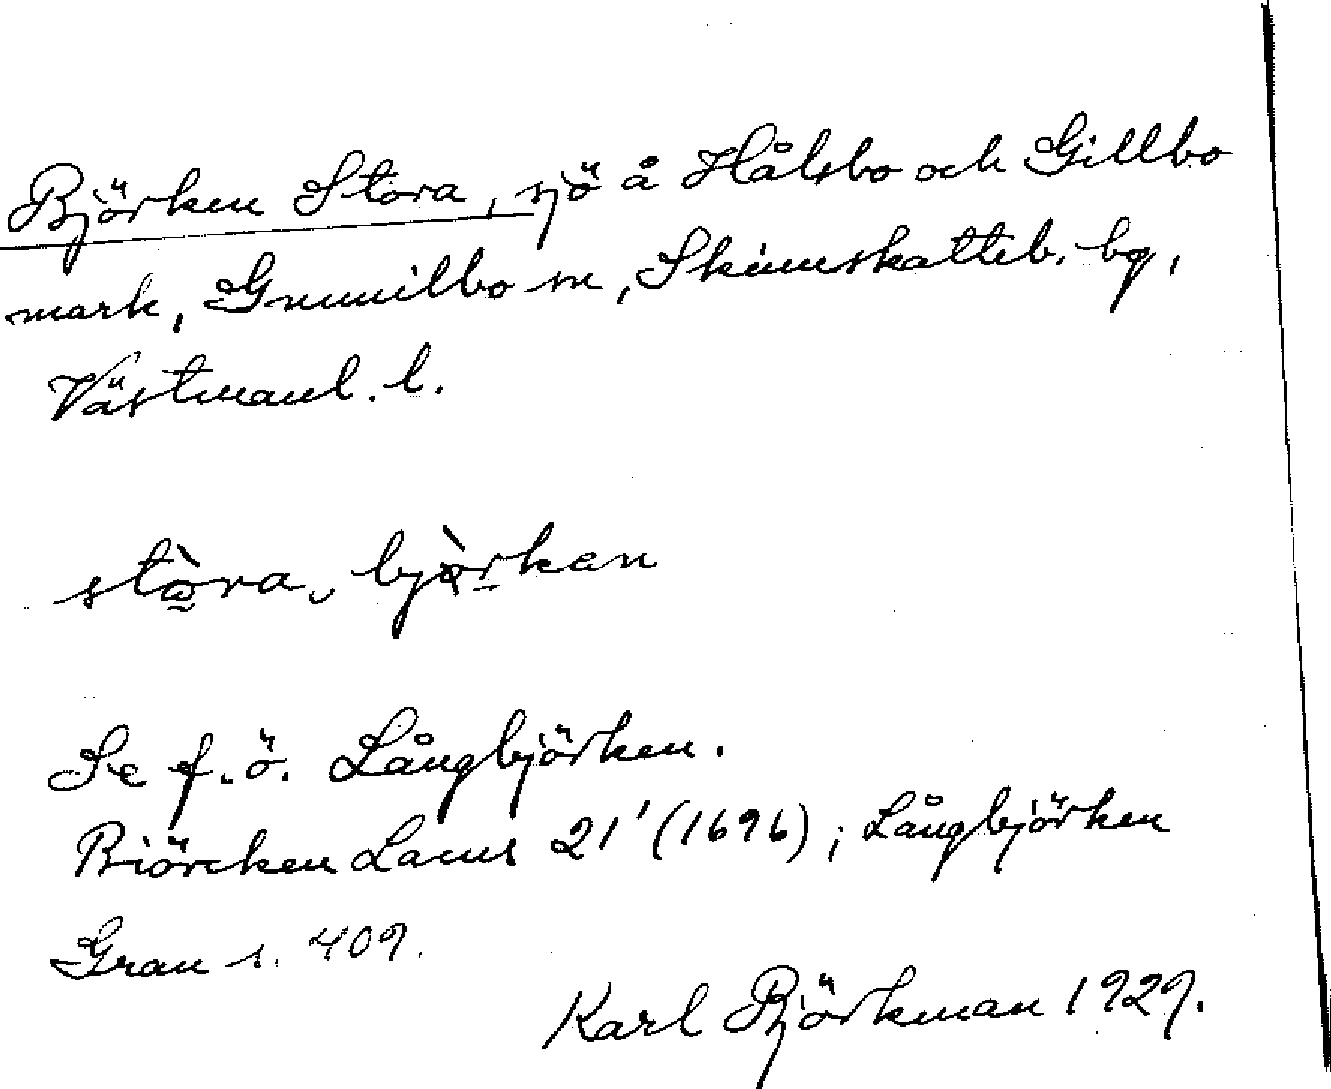 Björken Stora, sjö å Hålsbo och Gillbo
mark, Gunnilbo sn, Skinnskatteb. bg,
Västmanl. l.
stòra björkan
Se f.ö. Långbjörken.
Biörcken Lacus 21' (1696); Långbjörken
Grau s. 409.
Karl Björkman 1929.